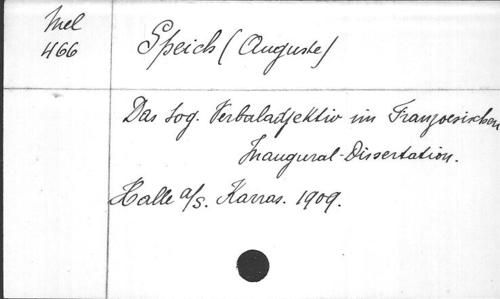 Mel
466
Speich (Auguste)
Das sog. Verbaladjektiv im Franzoesischen
Inaugural-Dissertation.
Halle a/s. Karras. 1909.